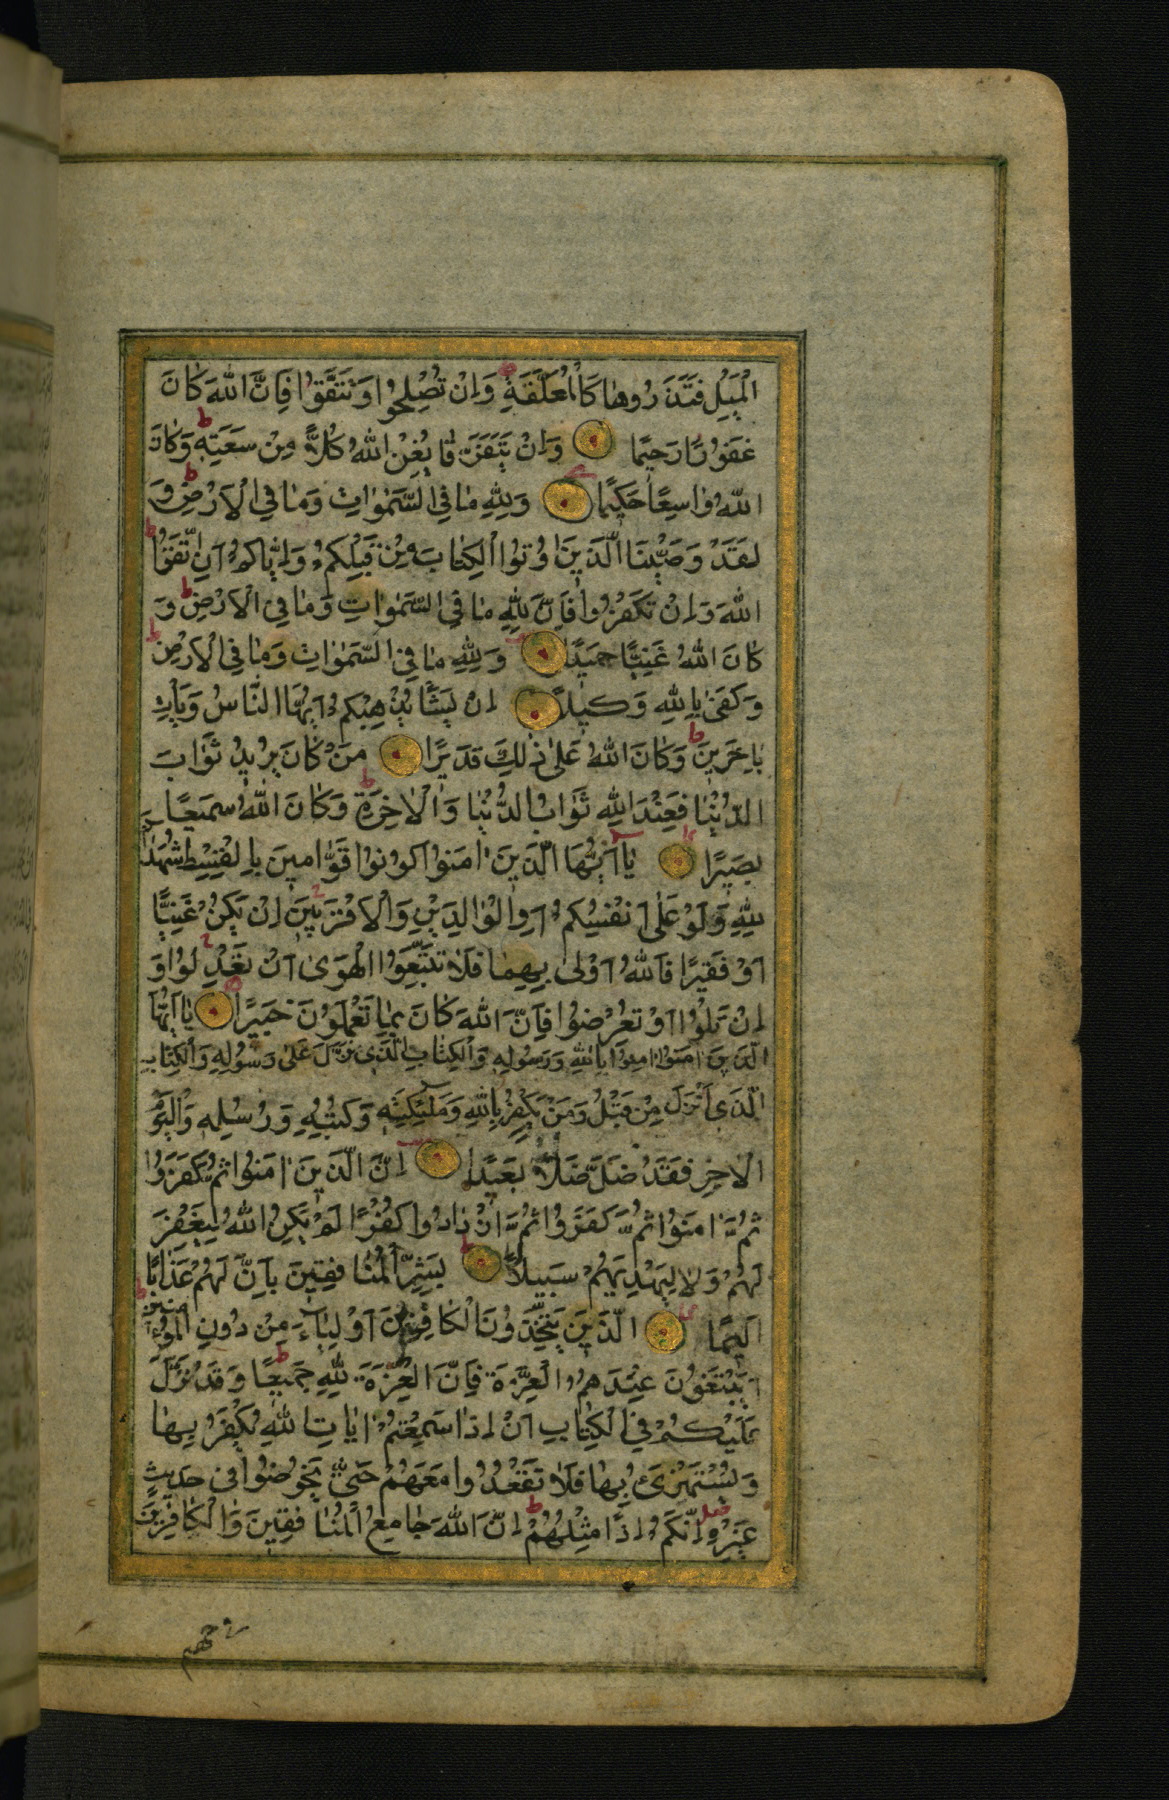 الْمَيْلِ فَتَذَرُوهَا كَالْمُعَلَّقَةِ وَاِنْ تُصْلِحُوا وَتَتَّقُوا فَاِنَّ اللّٰهَ كَانَ
غَفُورًا رَحِيمًا وَاِنْ يَتَفَرَّقَا يُغْنِ اللّٰهُ كُلًّا مِنْ سَعَتِهِ وَكَانَ
اللّٰهُ وَاسِعًا حَكِيمًا وَلِلّٰهِ مَا فِي السَّمٰوَاتِ وَمَا فِي الْاَرْضِ وَ
لَقَدْ وَصَّيْنَا الَّذِينَ اُوتُوا الْكِتَابَ مِنْ قَبْلِكُمْ وَاِيَّاكُمْ اَنِ اتَّقُوا
اللّٰهَ وَاِنْ تَكْفُرُوا فَاِنَّ لِلّٰهِ مَا فِي السَّمٰوَاتِ وَمَا فِي الْاَرْضِ وَ
كَانَ اللّٰهُ غَنِيًّا حَمِيدًا وَلِلّٰهِ مَا فِي السَّمٰوَاتِ وَمَا فِي الْاَرْضِ
وَكَفٰى بِاللّٰهِ وَكِيلًا اِنْ يَشَأْ يُذْهِبْكُمْ اَيُّهَا النَّاسُ وَيَأْتِ
بِاٰخَرِينَ وَكَانَ اللّٰهُ عَلٰى ذٰلِكَ قَدِيرًا مَنْ كَانَ يُرِيدُ ثَوَابَ
الدُّنْيَا فَعِنْدَ اللّٰهِ ثَوَابُ الدُّنْيَا وَالْاٰخِرَةِ وَكَانَ اللّٰهُ سَمِيعًا
بَصِيرًا يَا اَيُّهَا الَّذِينَ اٰمَنُوا كُونُوا قَوَّامِينَ بِالْقِسْطِ شُهَدَاءَ
لِلّٰهِ وَلَوْ عَلٰى اَنْفُسِكُمْ اَوِ الْوَالِدَيْنِ وَالْاَقْرَبِينَ اِنْ يَكُنْ غَنِيًّا
اَوْ فَقِيرًا فَاللّٰهُ اَوْلٰى بِهِمَا فَلَا تَتَّبِعُوا الْهَوٰى اَنْ تَعْدِلُوا وَ
اِنْ تَلْوُوا اَوْ تُعْرِضُوا فَاِنَّ اللّٰهَ كَانَ بِمَا تَعْمَلُونَ خَبِيرًا يَا اَيُّهَا
الَّذِينَ اٰمَنُوا اٰمِنُوا بِاللّٰهِ وَرَسُولِهِ وَالْكِتَابِ الَّذِي نَزَّلَ عَلٰى رَسُولِهِ وَالْكِتَابِ
الَّذِي اَنْزَلَ مِنْ قَبْلُ وَمَنْ يَكْفُرْ بِاللّٰهِ وَمَلٰئِكَتِهِ وَكُتُبِهِ وَرُسُلِهِ وَالْيَوْمِ
الْاٰخِرِ فَقَدْ ضَلَّ ضَلَالًا بَعِيدًا اِنَّ الَّذِينَ اٰمَنُوا ثُمَّ كَفَرُوا
ثُمَّ اٰمَنُوا ثُمَّ كَفَرُوا ثُمَّ ازْدَادُوا كُفْرًا لَمْ يَكُنِ اللّٰهُ لِيَغْفِرَ
لَهُمْ وَلَا لِيَهْدِيَهُمْ سَبِيلًا بَشِّرِ الْمُنَافِقِينَ بِاَنَّ لَهُمْ عَذَابًا
اَلِيمًا الَّذِينَ يَتَّخِذُونَ الْكَافِرِينَ اَوْلِيَاءَ مِنْ دُونِ الْمُؤْمِنِينَ
اَيَبْتَغُونَ عِنْدَهُمُ الْعِزَّةَ فَاِنَّ الْعِزَّةَ لِلّٰهِ جَمِيعًا وَقَدْ نَزَّلَ
عَلَيْكُمْ فِي الْكِتَابِ اَنْ اِذَا سَمِعْتُمْ اٰيَاتِ اللّٰهِ يُكْفَرُ بِهَا
وَيُسْتَهْزَئُ بِهَا فَلَا تَقْعُدُوا مَعَهُمْ حَتّٰى يَخُوضُوا فِي حَدِيثٍ
غَيْرِهِ اِنَّكُمْ اِذًا مِثْلُهُمْ اِنَّ اللّٰهَ جَامِعُ الْمُنَافِقِينَ وَالْكَافِرِينَ